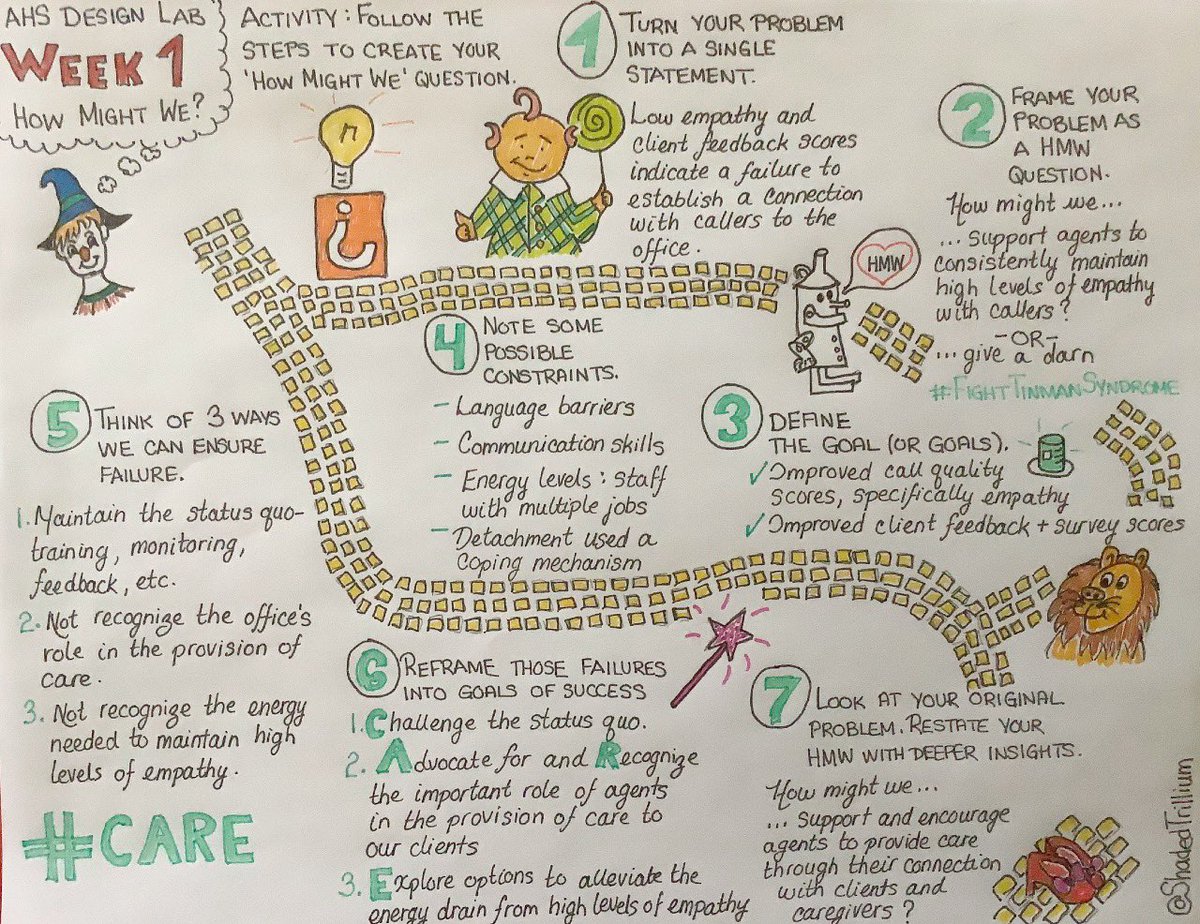 AHS DESIGN LAB
WEEK 1
HOW MIGHT WE?
ACTIVITY: FOLLOW THE
STEPS TO CREATE YOUR
'HOW MIGHT WE' QUESTION.
1
TURN YOUR PROBLEM
INTO A SINGLE
STATEMENT.
Low empathy and
client feedback scores
indicate a failure to
establish a connection
with callers to the
office.
2
FRAME YOUR
PROBLEM AS
A HMW
QUESTION.
How might we...
... support agents to
consistently maintain
high levels of empathy
with callers?
-OR-
... give a darn
#FIGHTTINMANSYNDROME
HMW
3
DEFINE
THE GOAL (OR GOALS).
✓ Improved call quality
scores, specifically empathy
✓ Improved client feedback + survey scores
4
NOTE SOME
POSSIBLE
CONSTRAINTS.
- Language barriers
- Communication skills
- Energy levels: staff
with multiple jobs
- Detachment used a
coping mechanism
5
THINK OF 3 WAYS
WE CAN ENSURE
FAILURE.
1. Maintain the status quo-
training, monitoring,
feedback, etc.
2. Not recognize the office's
role in the provision of
care.
3. Not recognize the energy
needed to maintain high
levels of empathy.
#CARE
6
REFRAME THOSE FAILURES
INTO GOALS OF SUCCESS
1. Challenge the status quo.
2. Advocate for and Recognize
the important role of agents
in the provision of care to
our clients
3. Explore options to alleviate the
energy drain from high levels of empathy
7
LOOK AT YOUR ORIGINAL
PROBLEM. RESTATE YOUR
HMW WITH DEEPER INSIGHTS.
How might we...
... Support and encourage
agents to provide care
through their connection
with clients and
caregivers?
@ShadedTrillium